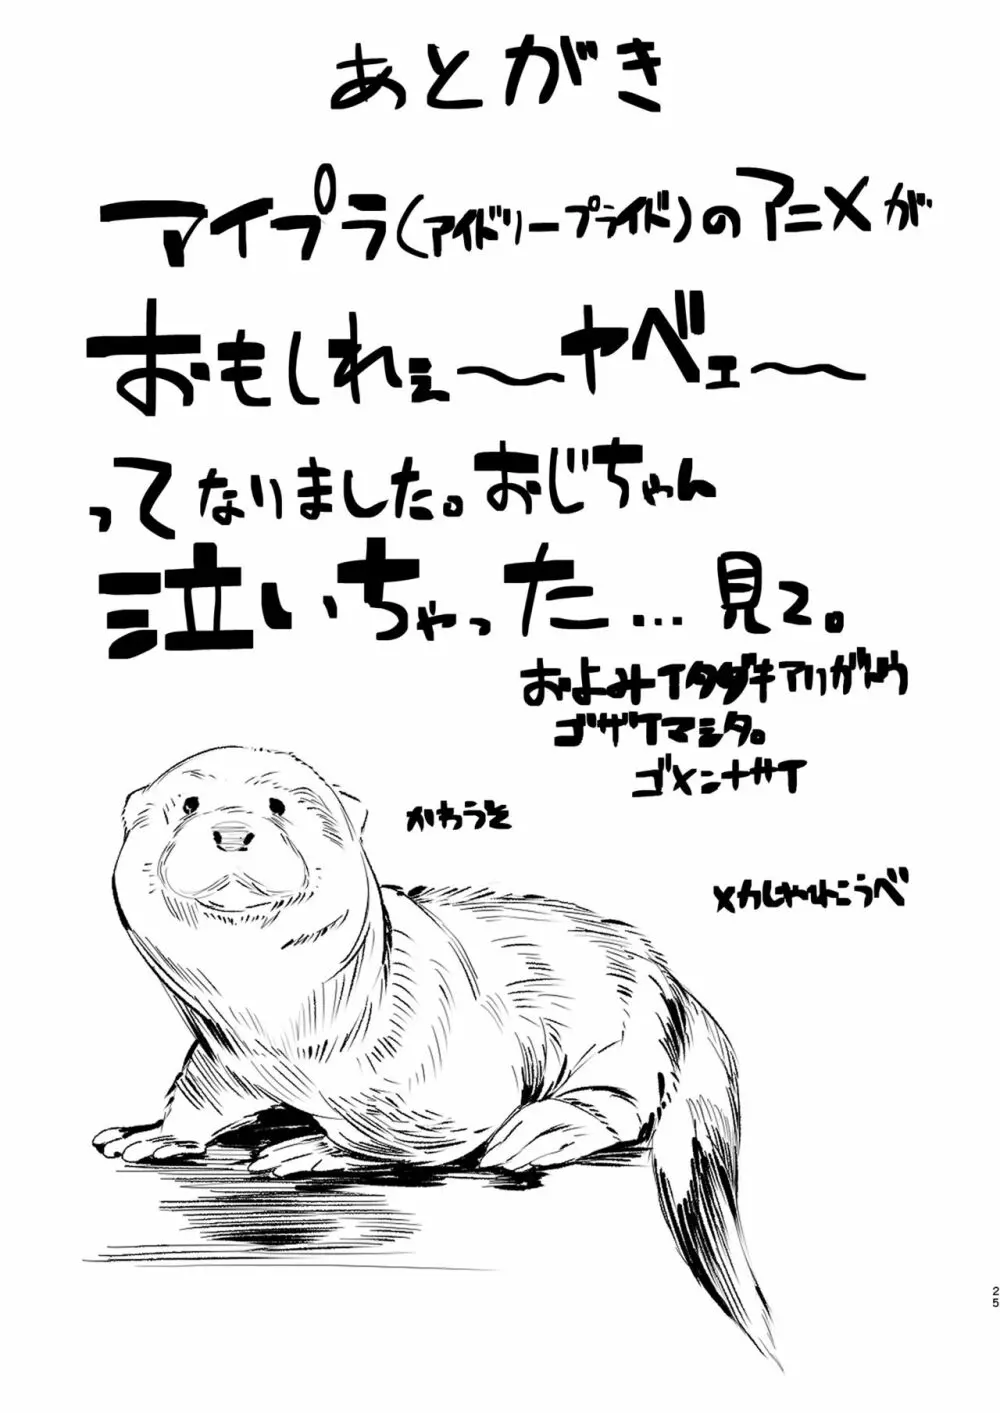 あとがき
アイプラ(アイドリープライド)のアニメが
おもしれぇ〜ヤベェ〜
ってなりました。おじちゃん
泣いちゃった…見て。
およみイタダキアリガトウ
ゴザイマシタ。
ゴメンナサイ
かわうそ
メカじゃひこうべ
25